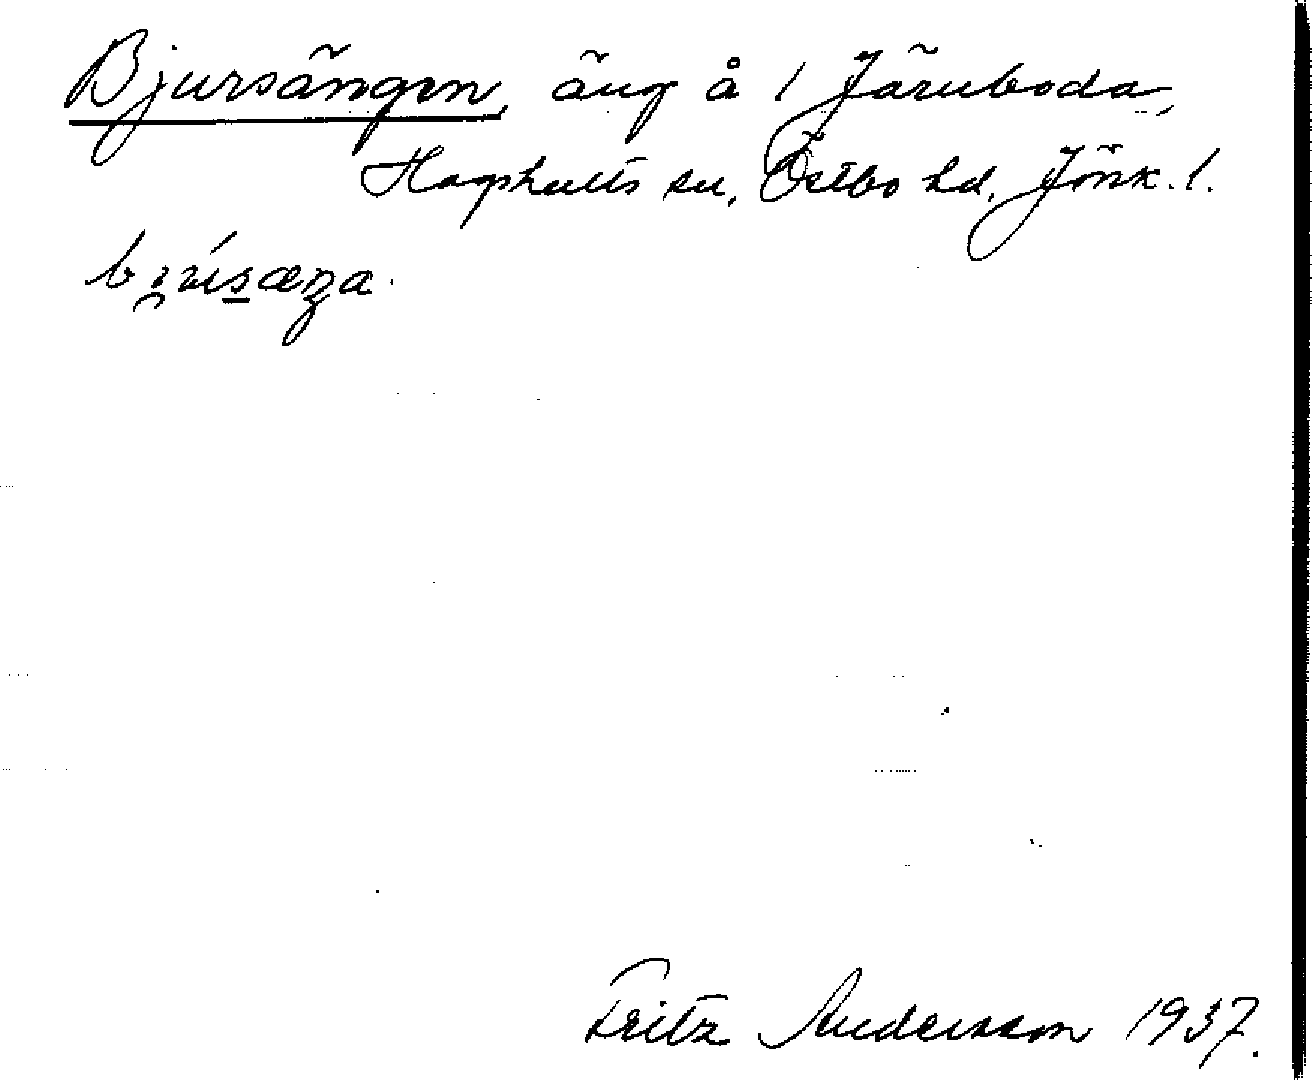 Bjursängen, äng å 1 Järnboda,
Hagshults sn, Östbo hd, Jönk. l.
Fritz Andersson 1937.